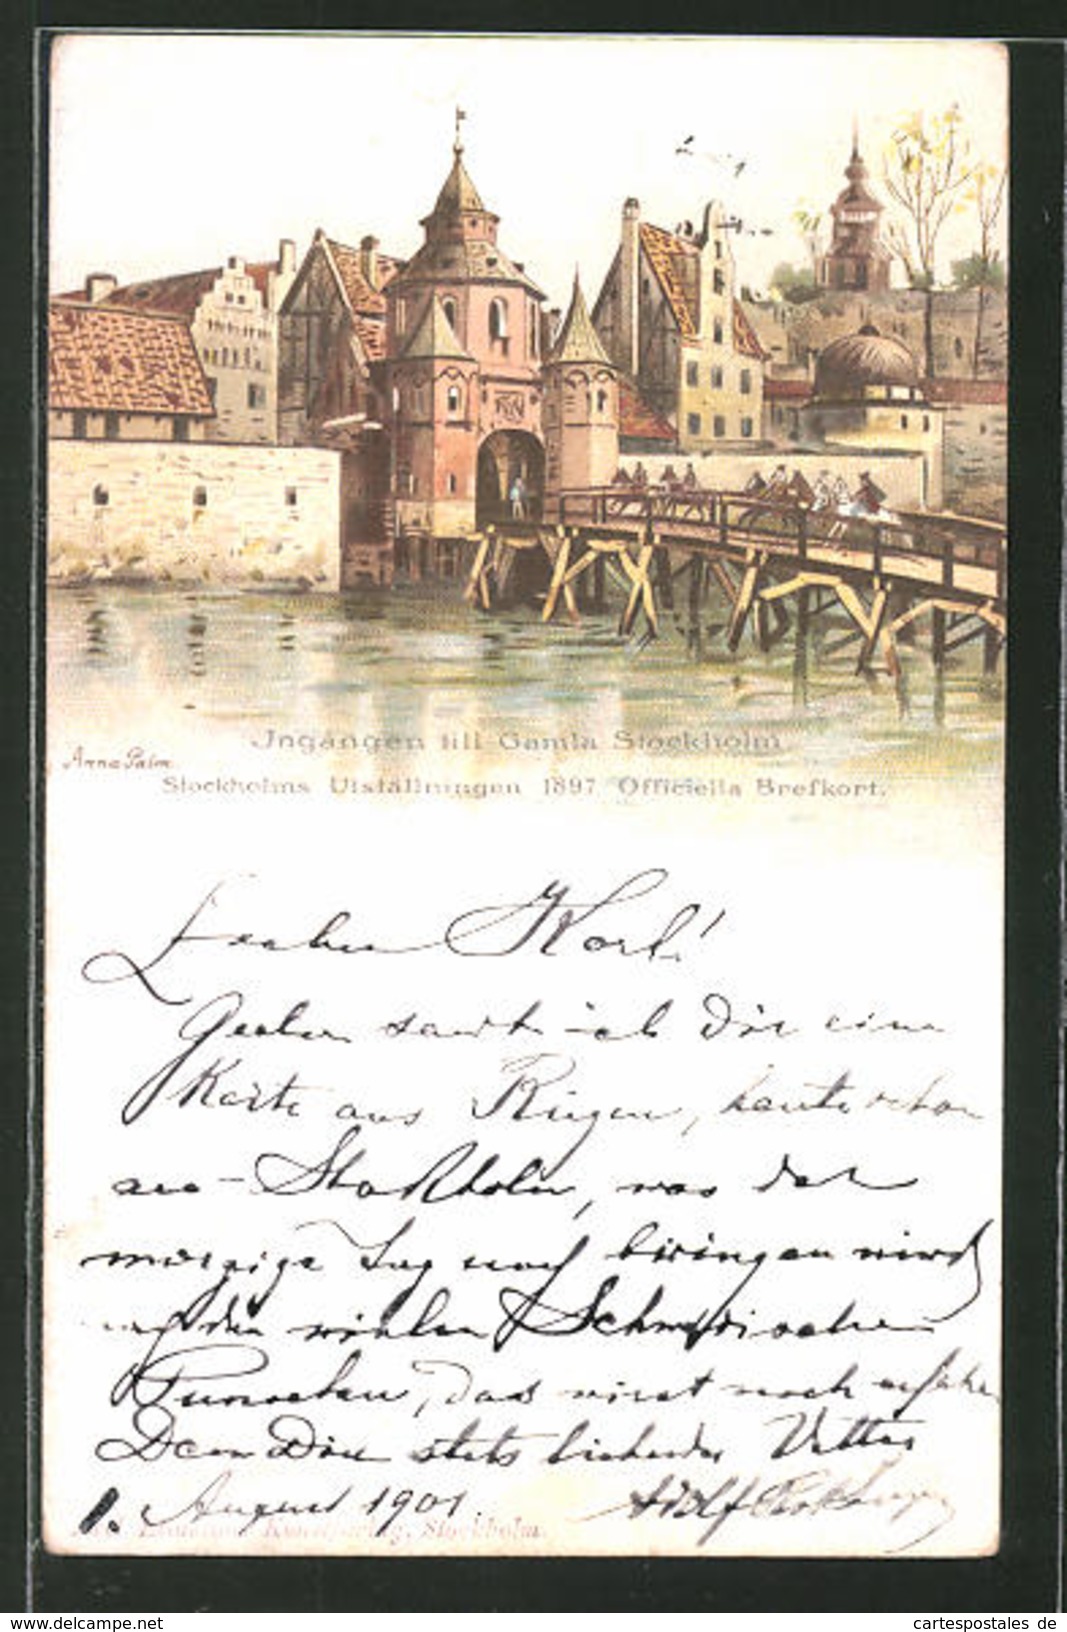 Ingången till Gamla Stockholm
Anna Palm
Stockholms Utställningen 1897 Officiella Brefkort.
Karl!
sandt ich Dir eine
Karte aus Rügen, heute schon
aus Stockholm, was der
morgige Tag noch bringen wird
den vielen Schwedischen
Punschen, das wirst noch
Dein Dir stets liebender Vetter
1. August 1901. Adolf
Kunstförlag, Stockholm.
www.delcampe.net
cartespostales de